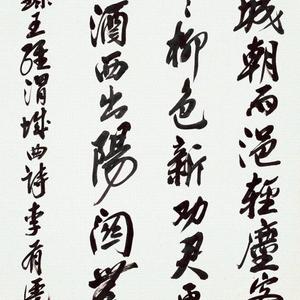 城朝雨浥輕塵客
柳色新劝君更
酒西出陽關無
錄王維渭城曲詩李有